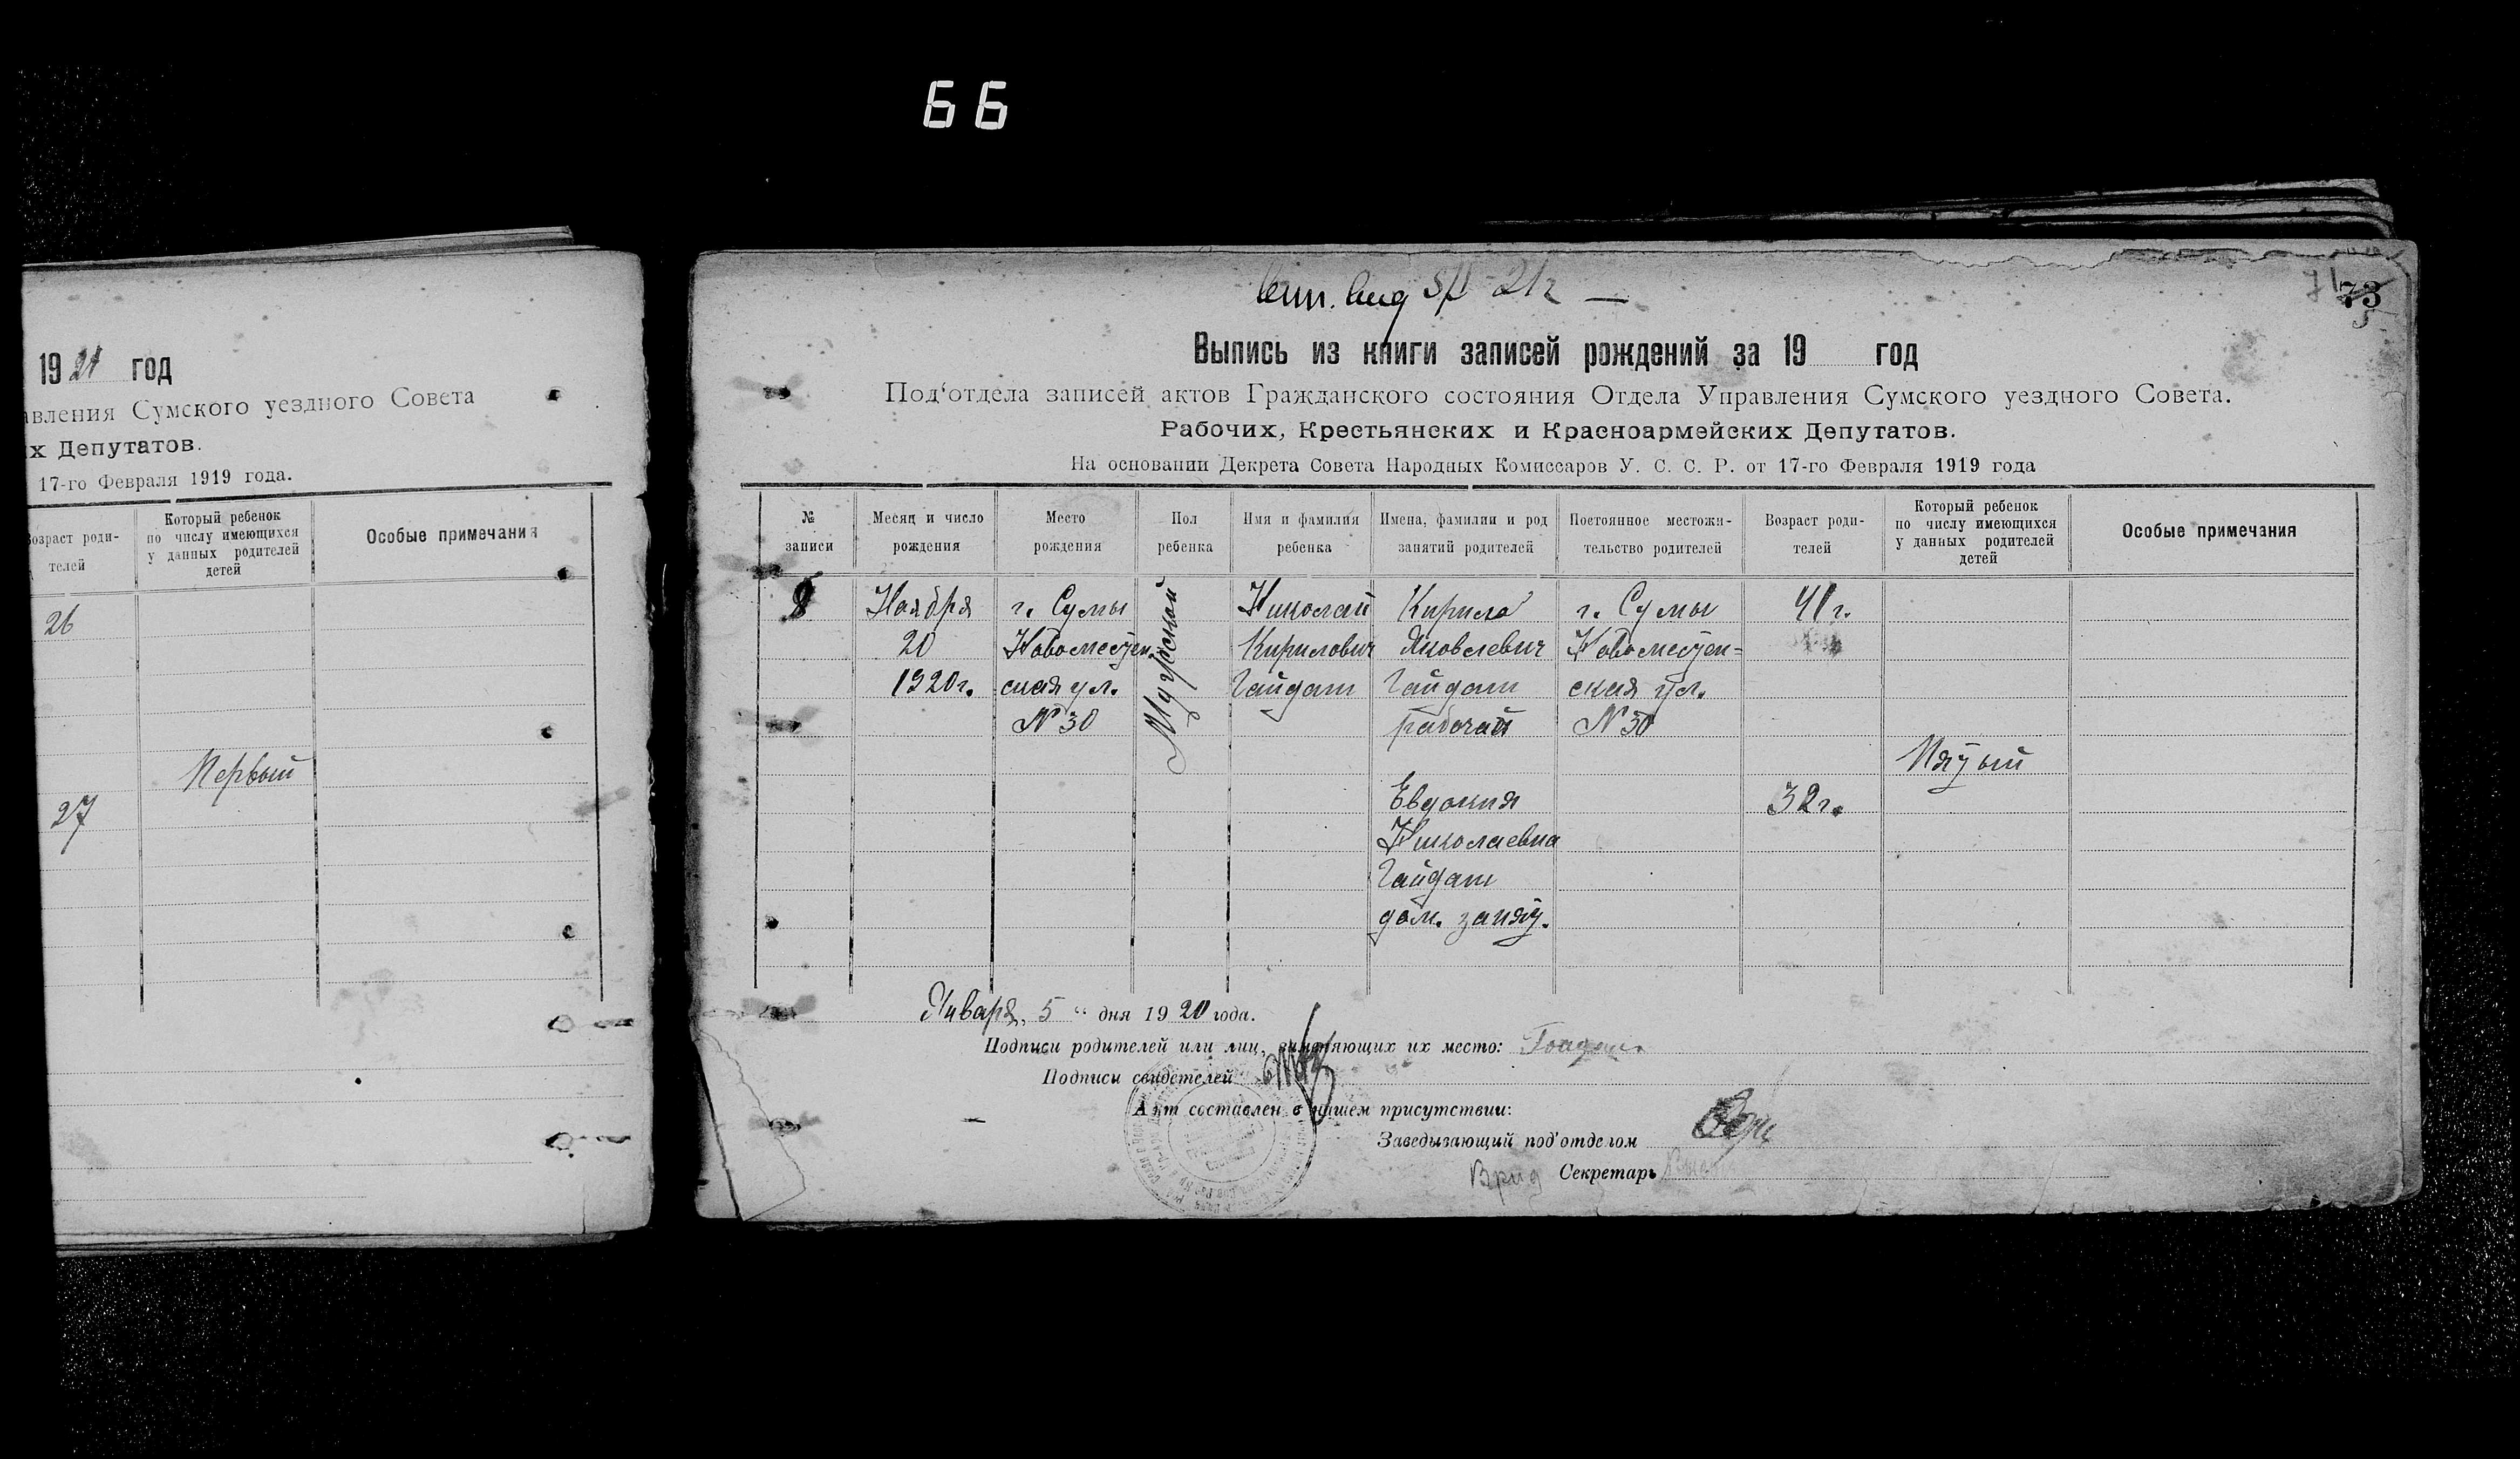 66
1921 год
авления Сумского уездного Совета
х Депутатов.
17-го Февраля 1919 года.
Возраст роди-
телей
Который ребенок
по числу имеющихся
у данных родителей
детей
Особые примечания
26
Первый
27
5/I 21г —
73
Выпись из книги записей рождений за 19 год
Под'отдела записей актов Гражданского состояния Отдела Управления Сумского уездного Совета.
Рабочих, Крестьянских и Красноармейских Депутатов.
На основании Декрета Совета Народных Комиссаров У. С. С. Р. от 17-го Февраля 1919 года
№
записи
Месяц и число
рождения
Место
рождения
Пол
ребенка
Имя и фамилия
ребенка
Имена, фамилии и род
занятий родителей
Постоянное местожи-
тельство родителей
Возраст роди-
телей
Который ребенок
по числу имеющихся
у данных родителей
детей
Особые примечания
8
Ноября
20
1920г.
г. Сумы
Новоместен-
ская ул.
№ 30
Мужской
Николай
Кирилович
Гайдаш
Кирило
Яковлевич
Гайдаш
рабочий
Евдокия
Николаевна
Гайдаш
дом. занят.
г. Сумы
Новоместен=
ская ул.
№ 30
41г.
32г.
Пятый
Января, 5 " дня 1920 года.
Подписи родителей или лиц, заменяющих их место: Гайдаш
Подписи свидетелей
Акт составлен в нашем присутствии:
Заведывающий под'отделом
Врид Секретарь